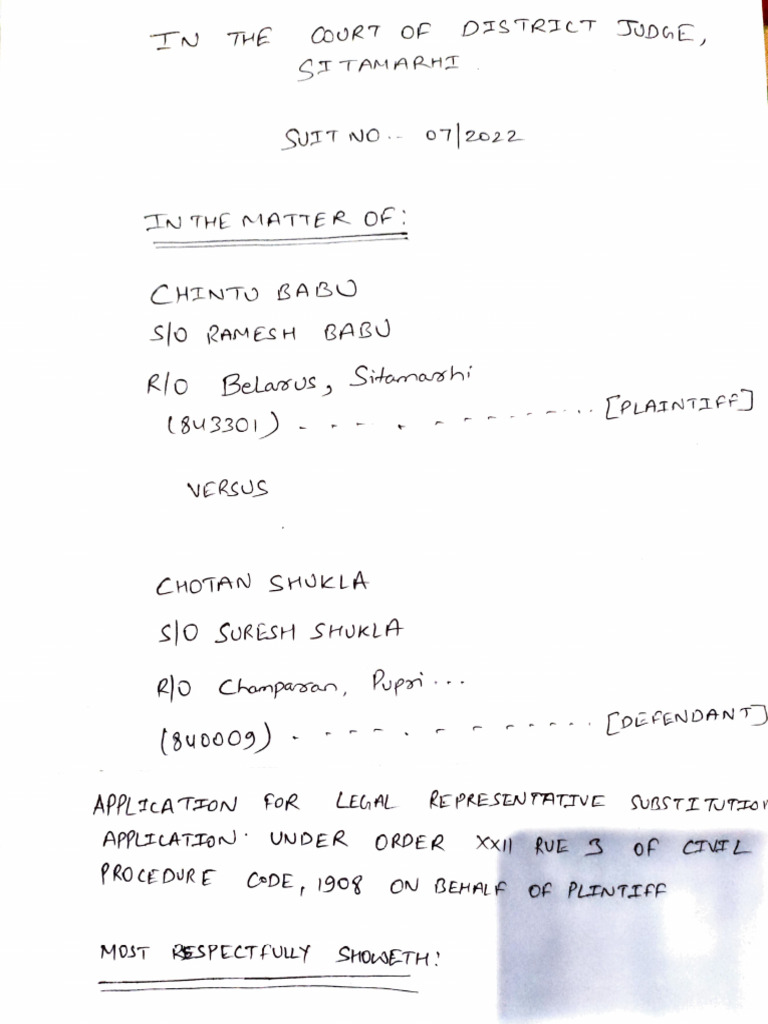 IN THE COURT OF DISTRICT JUDGE,
SITAMARHI
SUIT NO.. 07/2022
IN THE MATTER OF:
CHINTU BABU
S/O RAMESH BABU
R/O Belarus, Sitamarhi
(843301) - - - . - - - - - - - ... [PLAINTIFF]
VERSUS
CHOTAN SHUKLA
S/O SURESH SHUKLA
R/O Champaran, Pupri...
(840009) . - - - - . - - - - - .... [DEFENDANT]
APPLICATION FOR LEGAL REPRESENTATIVE SUBSTITUTION
APPLICATION. UNDER ORDER XXII RUE 3 OF CIVIL
PROCEDURE CODE, 1908 ON BEHALF OF PLINTIFF
MOST RESPECTFULLY SHOWETH: